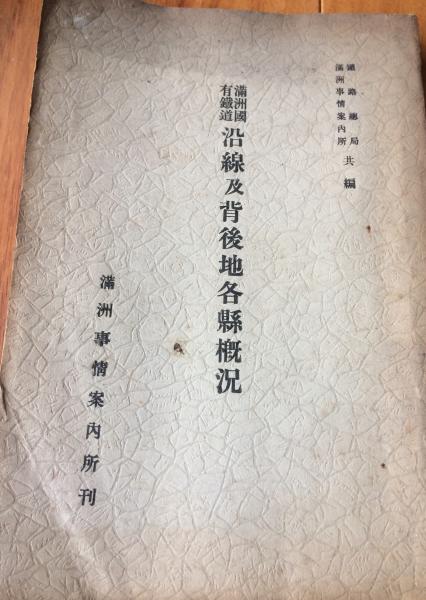 鐵路總局
滿洲事情案內所
共編
滿洲國
有鐵道
沿線及背後地各縣概況
滿洲事情案內所刊